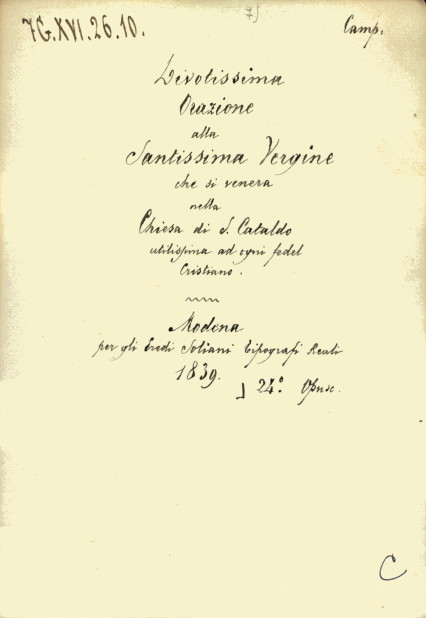 7G.XVI.26.10.
75
Camp.
Divotissima
Orazione
alla
Santissima Vergine
che si venera
nella
Chiesa di S. Cataldo
utilissima ad ogni fedel
Cristiano.
Modena
per gli Eredi Soliani Tipografi Reali
1839.
24° Opusc.
C